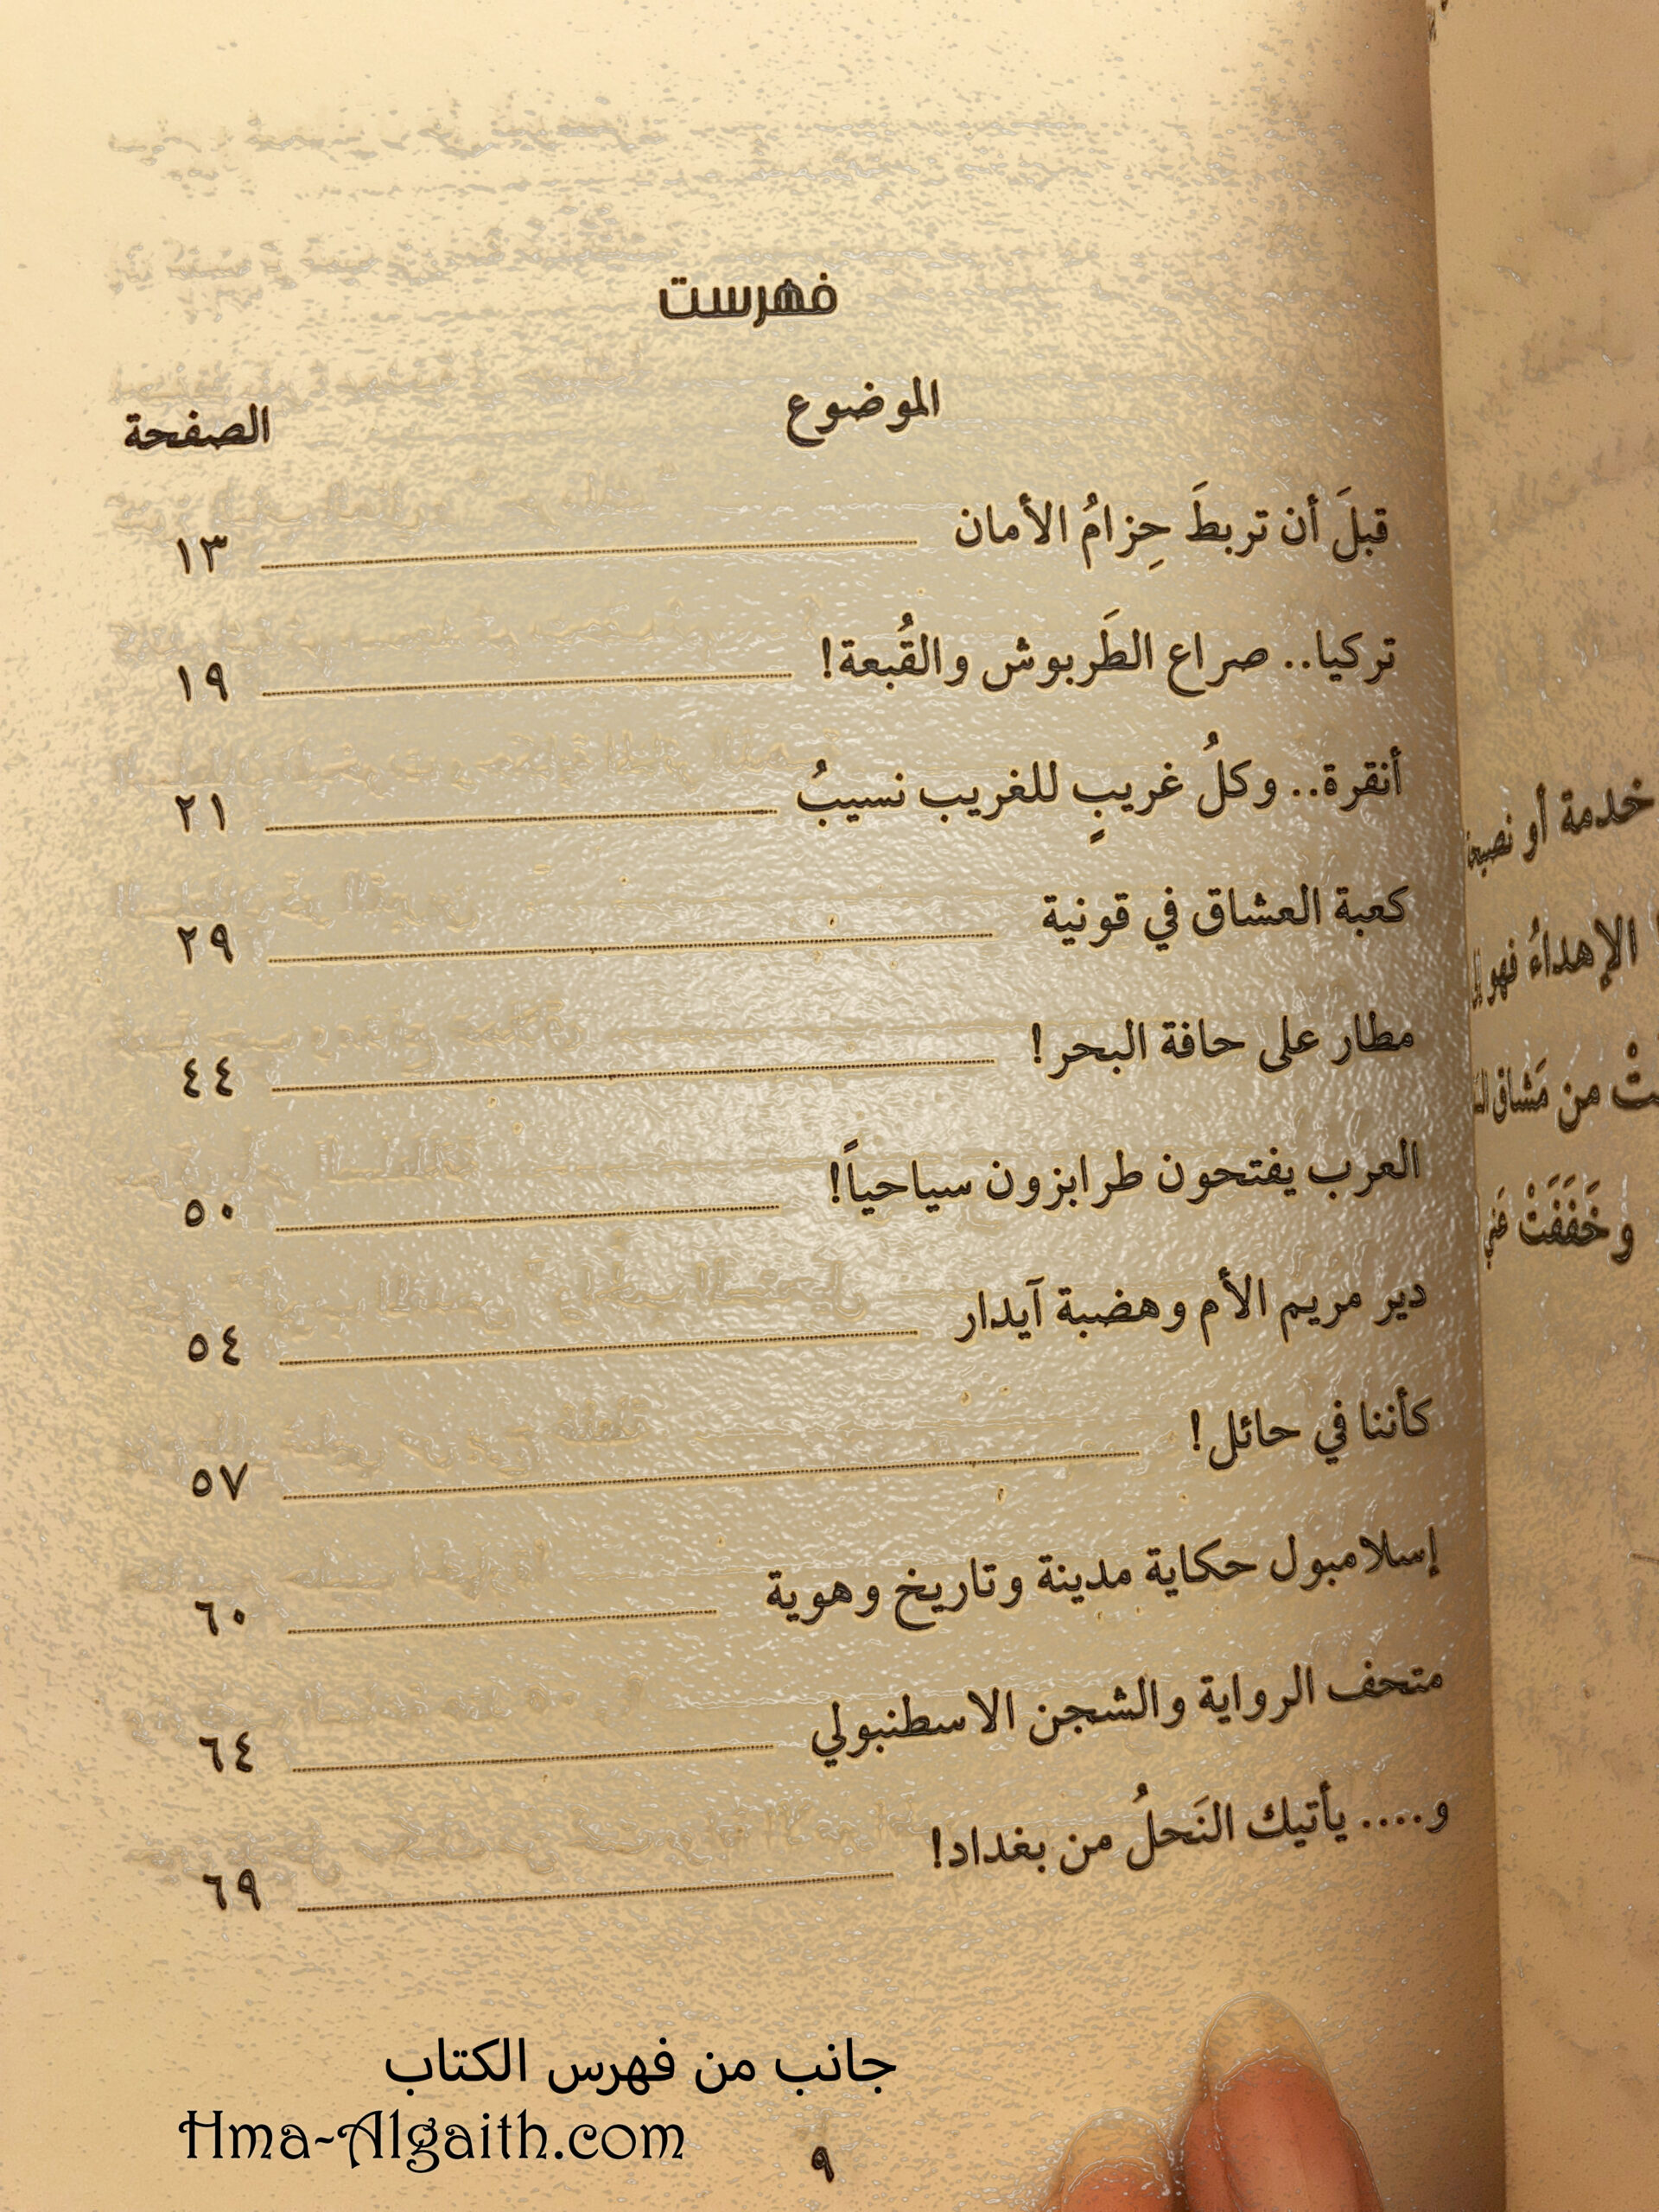 فهرست
الموضوع
الصفحة
قبلَ أن تربطَ حِزامُ الأمان ١٣
تركيا.. صراع الطَربوش والقُبعة! ١٩
أنقرة.. وكلُ غريبٍ للغريب نسيبُ ٢١
كعبة العشاق في قونية ٢٩
مطار على حافة البحر! ٤٤
العرب يفتحون طرابزون سياحياً! ٥٠
دير مريم الأم وهضبة آيدار ٥٤
كأننا في حائل! ٥٧
إسلامبول حكاية مدينة وتاريخ وهوية ٦٠
متحف الرواية والشجن الاسطنبولي ٦٤
و.... يأتيك النَحلُ من بغداد! ٦٩
جانب من فهرس الكتاب
Hma-Algaith.com
٩
خدمة أو
الإهداءُ فهو
من مَشاق
وخَفَفَتْ